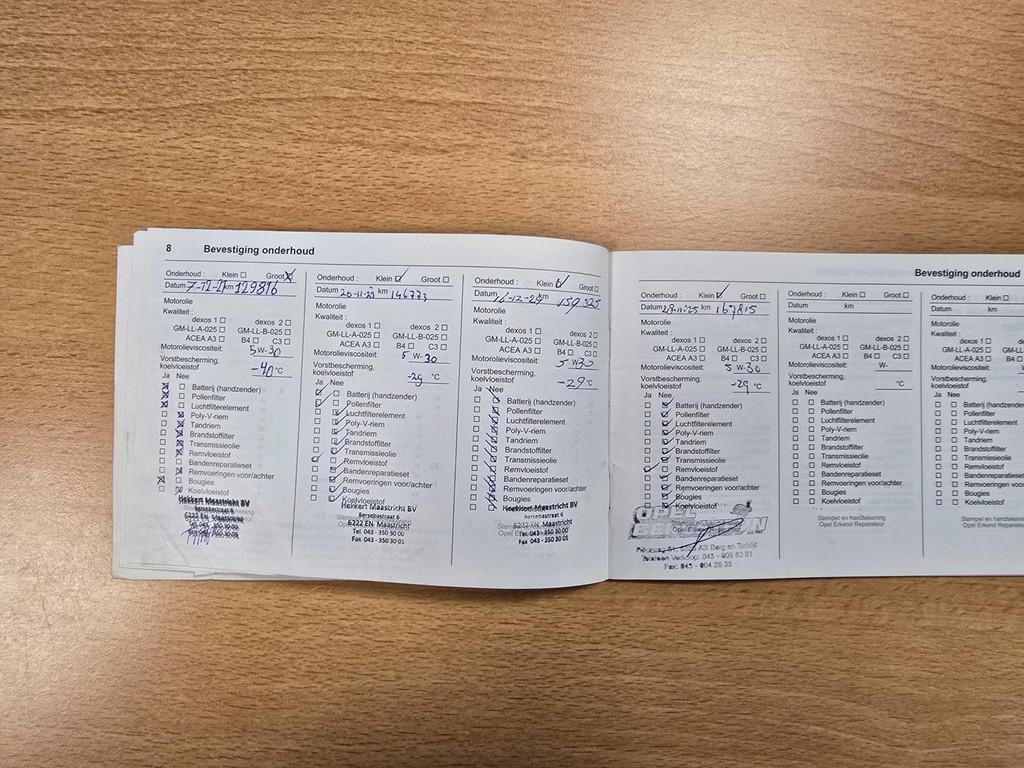 8 Bevestiging onderhoud
Onderhoud : Klein Groot
Datum km 129816
Motorolie
Kwaliteit :
dexos 1 dexos 2
GM-LL-A-025 GM-LL-B-025
ACEA A3 B4 C3
Motorolieviscositeit: 5W-30
Vorstbescherming,
koelvloeistof -40 °C
Ja Nee
Batterij (handzender)
Pollenfilter
Luchtfilterelement
Poly-V-riem
Tandriem
Brandstoffilter
Transmissieolie
Remvloeistof
Bandenreparatieset
Remvoeringen voor/achter
Bougies
Koelvloeistof
Hekkert Maastricht BV
Bersebastraat 6
6222 EN Maastricht
Tel. 043 - 350 30 00
Fax 043 - 350 30 01
Onderhoud : Klein Groot
Datum 20-11-23 km 146773
Motorolie
Kwaliteit :
dexos 1 dexos 2
GM-LL-A-025 GM-LL-B-025
ACEA A3 B4 C3
Motorolieviscositeit: 5 W- 30
Vorstbescherming,
koelvloeistof -29 °C
Ja Nee
Batterij (handzender)
Pollenfilter
Luchtfilterelement
Poly-V-riem
Tandriem
Brandstoffilter
Transmissieolie
Remvloeistof
Bandenreparatieset
Remvoeringen voor/achter
Bougies
Koelvloeistof
Hekkert Maastricht BV
Bersebastraat 6
6222 EN Maastricht
Tel. 043 - 350 30 00
Fax 043 - 350 30 01
Onderhoud : Klein Groot
Datum km 159325
Motorolie
Kwaliteit :
dexos 1 dexos 2
GM-LL-A-025 GM-LL-B-025
ACEA A3 B4 C3
Motorolieviscositeit: 5 W-30
Vorstbescherming,
koelvloeistof -29 °C
Ja Nee
Batterij (handzender)
Pollenfilter
Luchtfilterelement
Poly-V-riem
Tandriem
Brandstoffilter
Transmissieolie
Remvloeistof
Bandenreparatieset
Remvoeringen voor/achter
Bougies
Koelvloeistof
Hekkert Maastricht BV
Bersebastraat 6
6222 EN Maastricht
Tel. 043 - 350 30 00
Fax 043 - 350 30 01
Bevestiging onderhoud
Onderhoud : Klein Groot
Datum 28-11-25 km 167815
Motorolie
Kwaliteit :
dexos 1 dexos 2
GM-LL-A-025 GM-LL-B-025
ACEA A3 B4 C3
Motorolieviscositeit: 5 W-30
Vorstbescherming,
koelvloeistof -29 °C
Ja Nee
Batterij (handzender)
Pollenfilter
Luchtfilterelement
Poly-V-riem
Tandriem
Brandstoffilter
Transmissieolie
Remvloeistof
Bandenreparatieset
Remvoeringen voor/achter
Bougies
Koelvloeistof
OPEL
Onderhoud : Klein Groot
Datum km
Motorolie
Kwaliteit :
dexos 1 dexos 2
GM-LL-A-025 GM-LL-B-025
ACEA A3 B4 C3
Motorolieviscositeit: W-
Vorstbescherming,
koelvloeistof °C
Ja Nee
Batterij (handzender)
Pollenfilter
Luchtfilterelement
Poly-V-riem
Tandriem
Brandstoffilter
Transmissieolie
Remvloeistof
Bandenreparatieset
Remvoeringen voor/achter
Bougies
Koelvloeistof
Stempel en handtekening
Opel Erkend Reparateur
Onderhoud : Klein
Datum km
Motorolie
Kwaliteit :
dexos 1
GM-LL-A-025
ACEA A3
Motorolieviscositeit:
Vorstbescherming,
koelvloeistof
Ja Nee
Batterij (handzender)
Pollenfilter
Luchtfilterelement
Poly-V-riem
Tandriem
Brandstoffilter
Transmissieolie
Remvloeistof
Bandenreparatieset
Remvoeringen
Bougies
Koelvloeistof
Stempel en handtekening
Opel Erkend